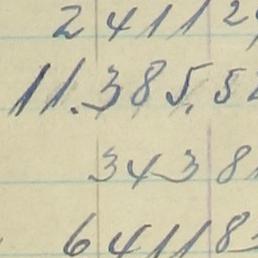 2 4 1 1 2
11.385.5
3438
641183